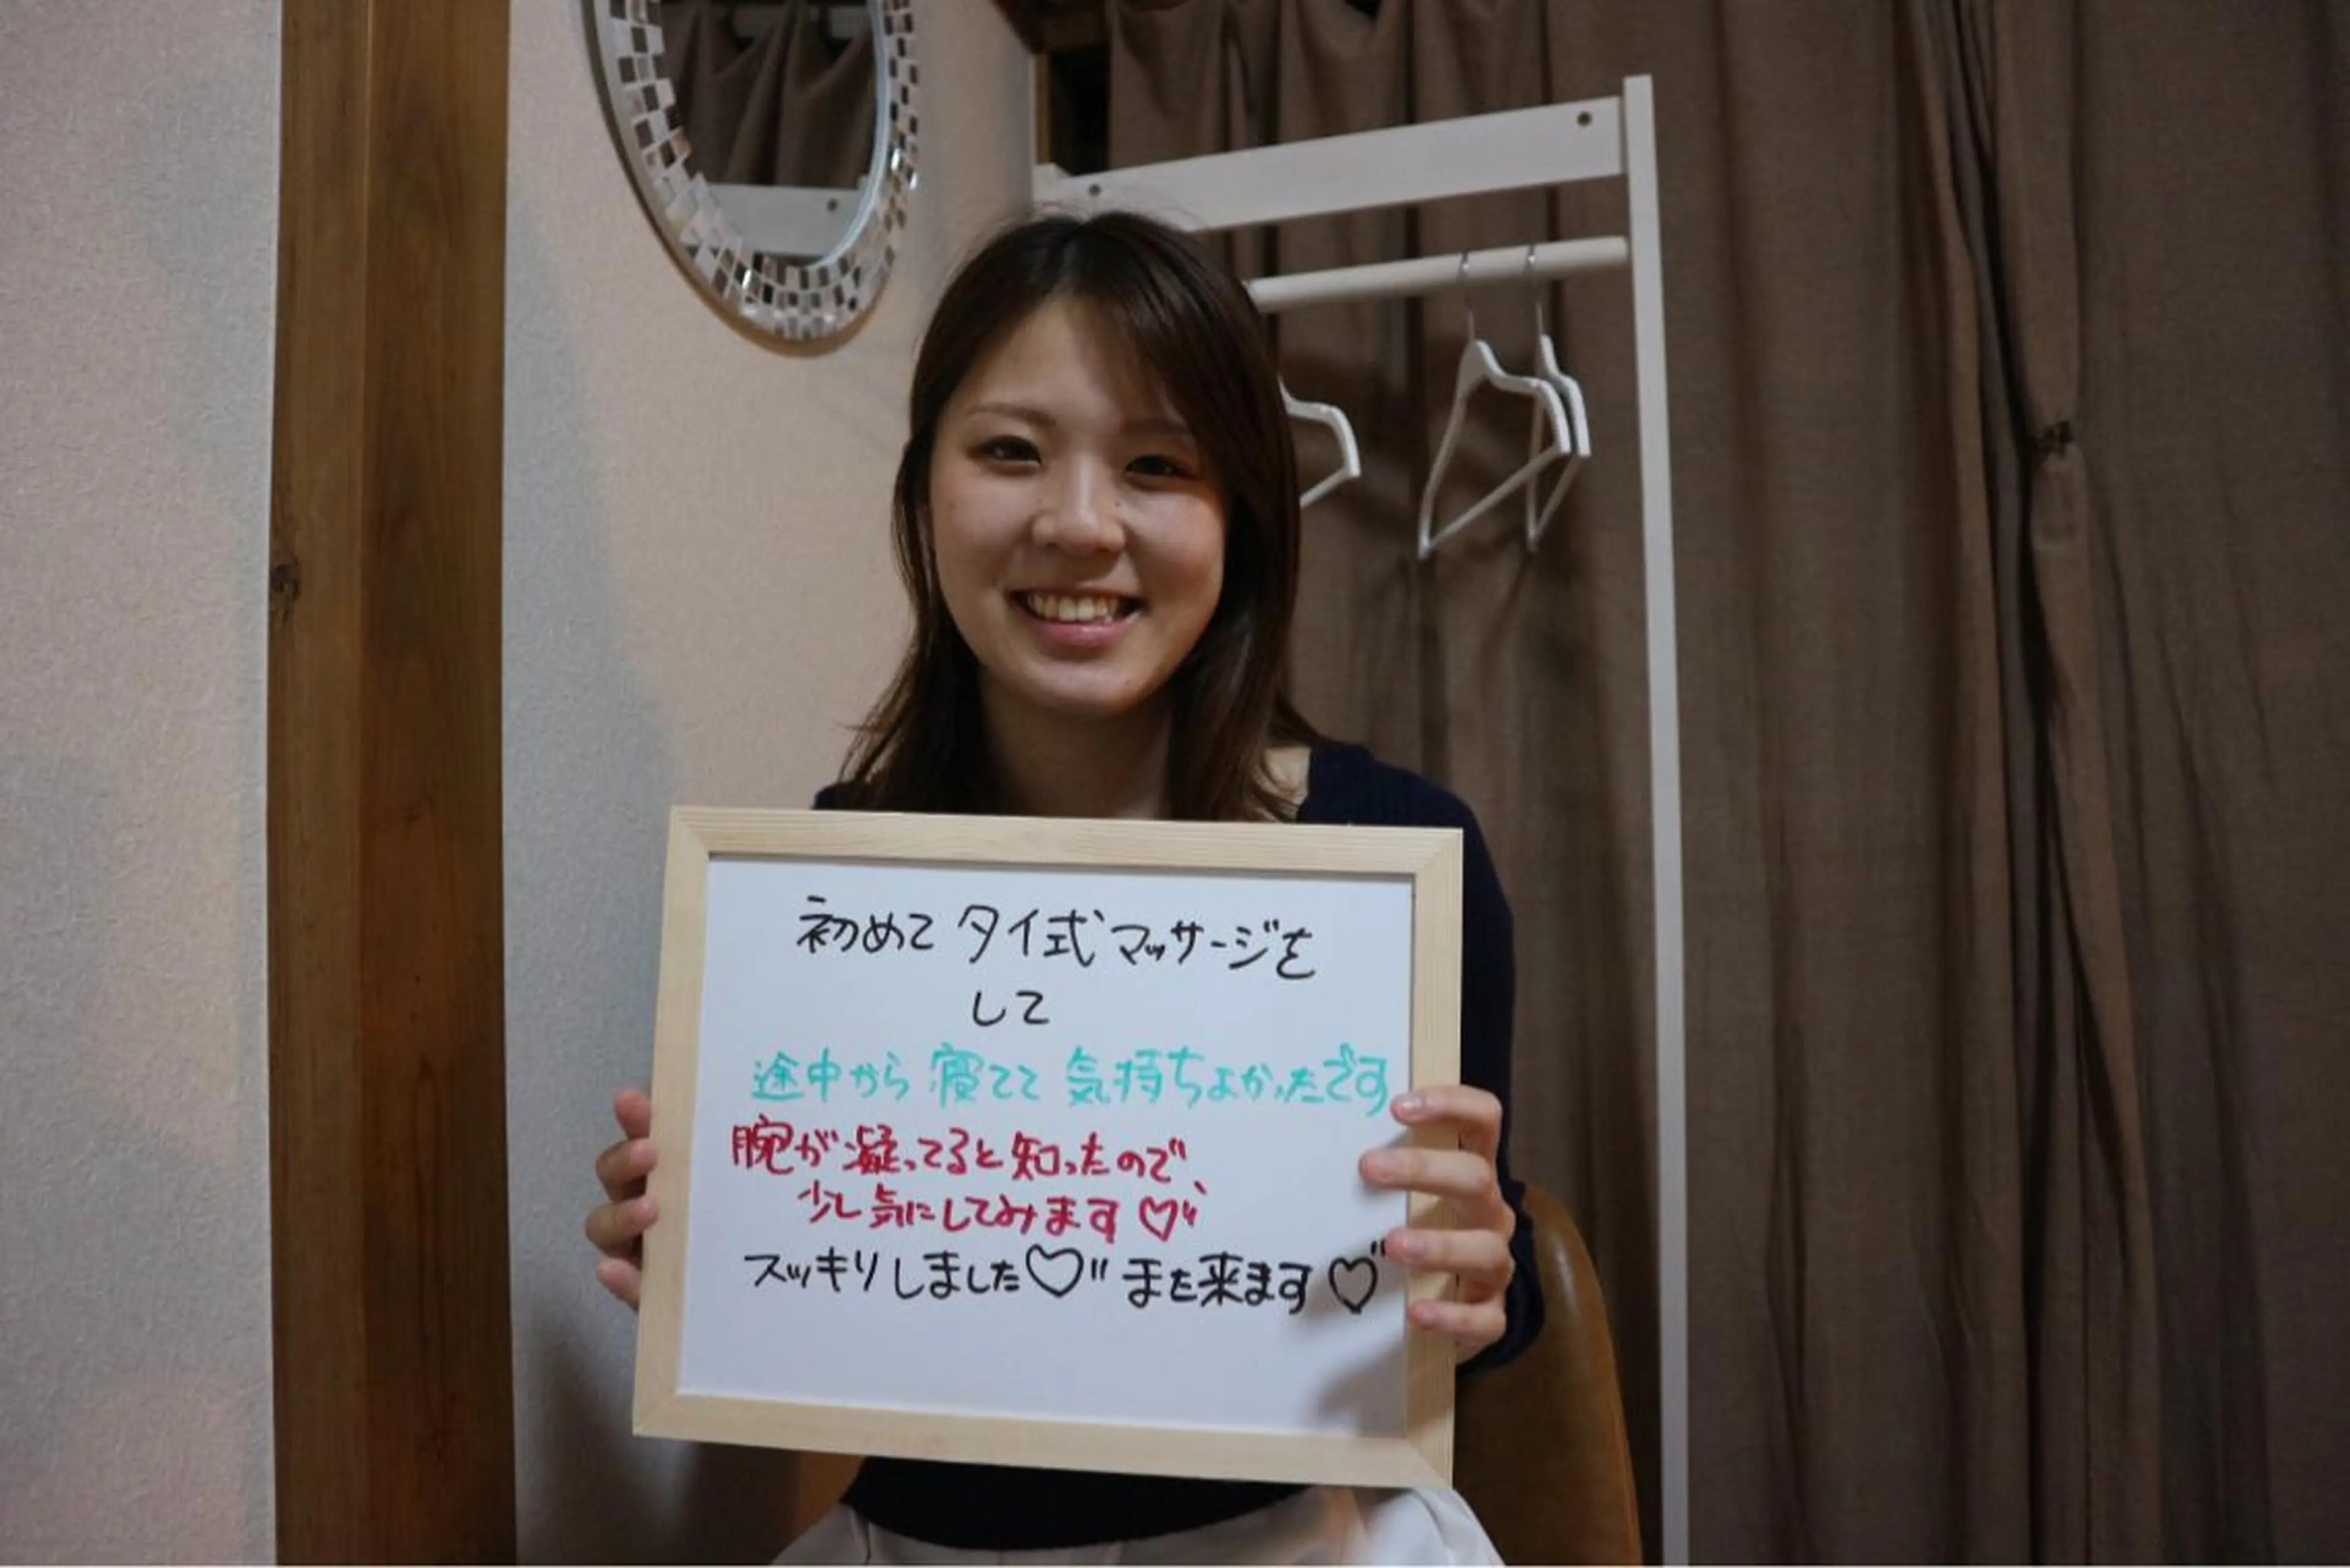 初めて タイ式 マッサージを
して
途中から 寝てて 気持ちよかったです
腕が凝ってると知ったので、
少し気にしてみます♡〃
スッキリしました♡〃 また来ます♡〃